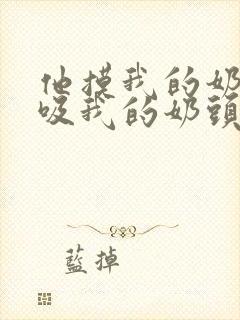 他摸我的奶
吸我的奶頭
藍掉